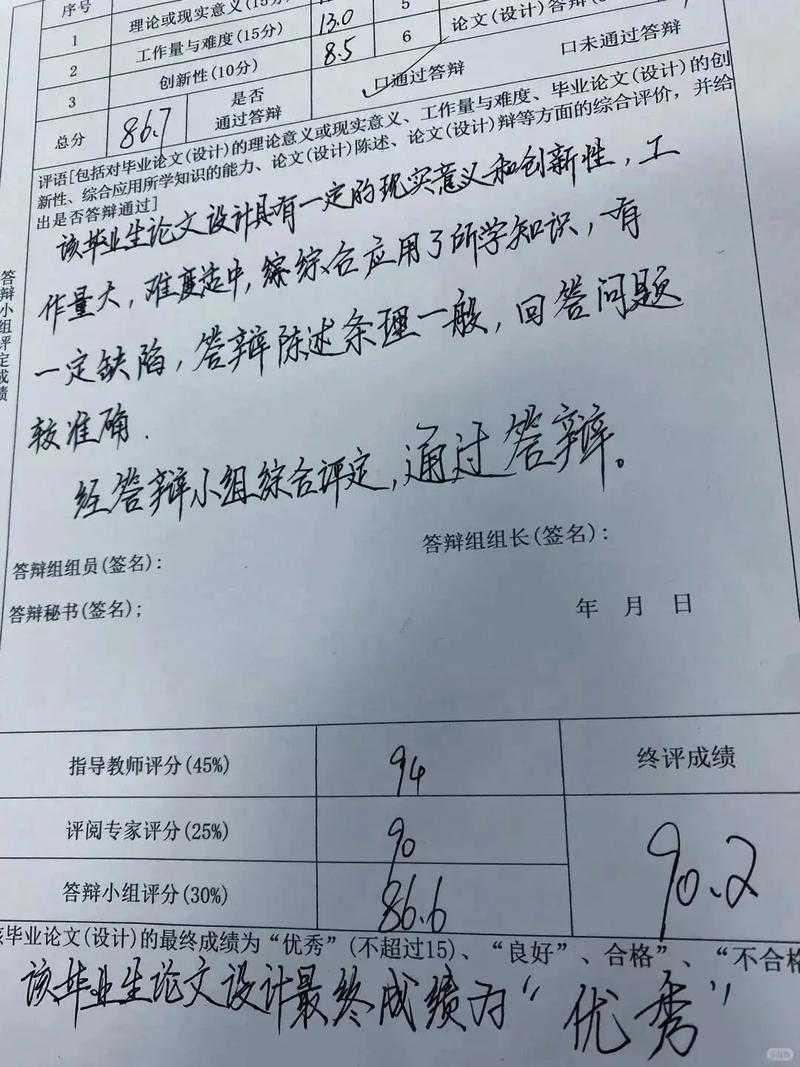 序号
理论或现实意义(15分)
1
13.0
5
论文(设计)答辩
工作量与难度(15分)
2
8.5
6
创新性(10分)
3
□通过答辩
□未通过答辩
总分
86.7
是否
通过答辩
评语[包括对毕业论文(设计)的理论意义或现实意义、工作量与难度、毕业论文(设计)的创
新性、综合应用所学知识的能力、论文(设计)陈述、论文(设计)辩等方面的综合评价，并给
出是否答辩通过]
该毕业生论文设计具有一定的现实意义和创新性，工
作量大，难度适中，综综合应用了所学知识，有
一定缺陷，答辩陈述条理一般，回答问题
较准确.
经答辩小组综合评定，通过答辩。
答辩小组评定成绩
答辩组组长(签名)：
答辩组组员(签名)：
答辩秘书(签名)；
年 月 日
指导教师评分(45%)
94
终评成绩
评阅专家评分(25%)
90
90.2
答辩小组评分(30%)
86.6
该毕业论文(设计)的最终成绩为“优秀”(不超过15)、“良好”、合格”、“不合格
该毕业生论文设计最终成绩为“优秀”